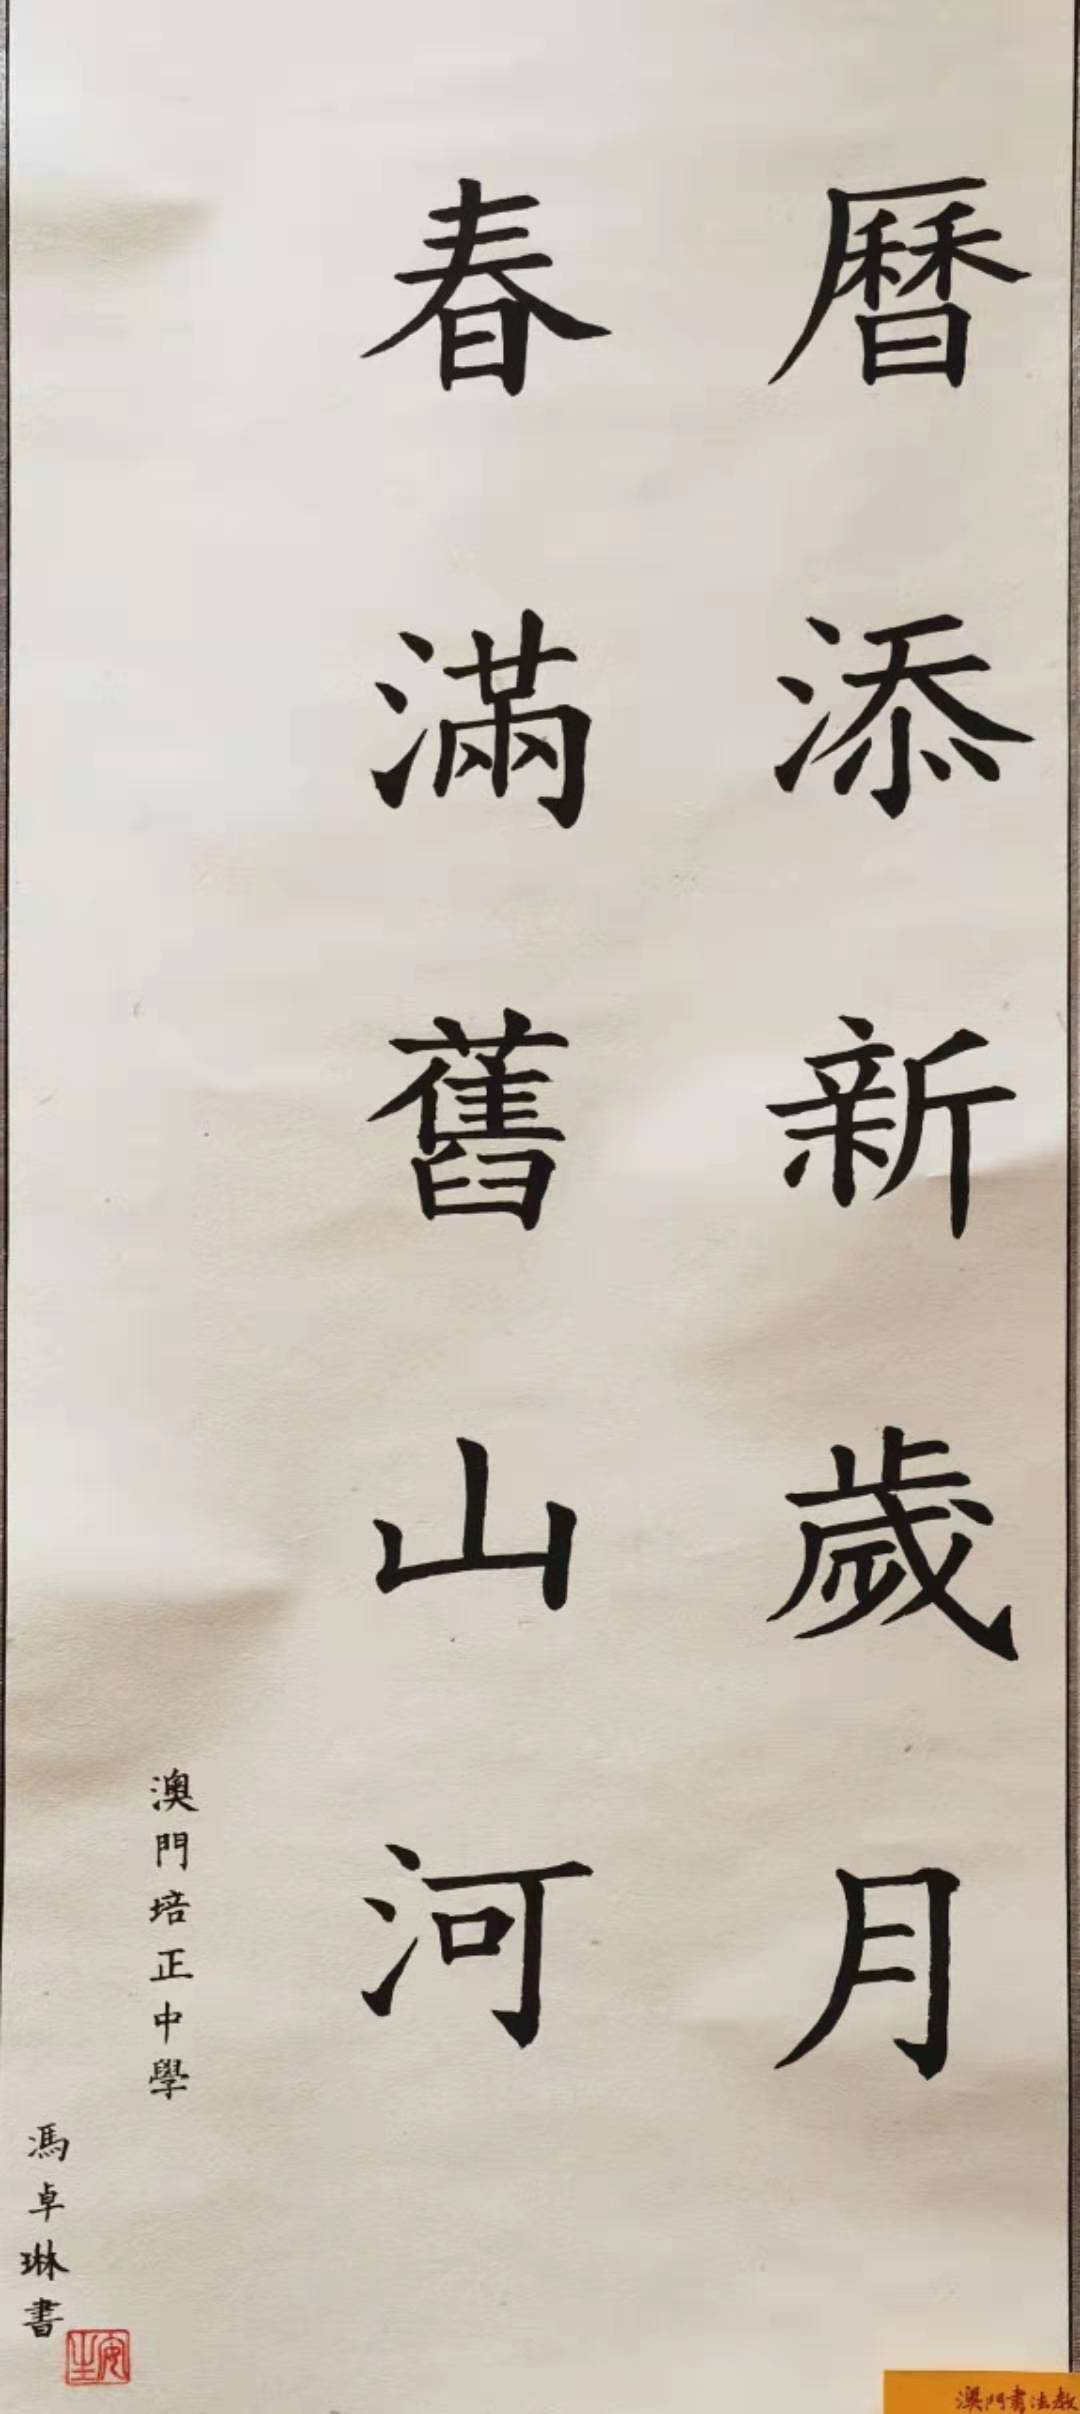 曆添新歲月
春滿舊山河
澳門培正中學
馮卓琳書
澳門書法教